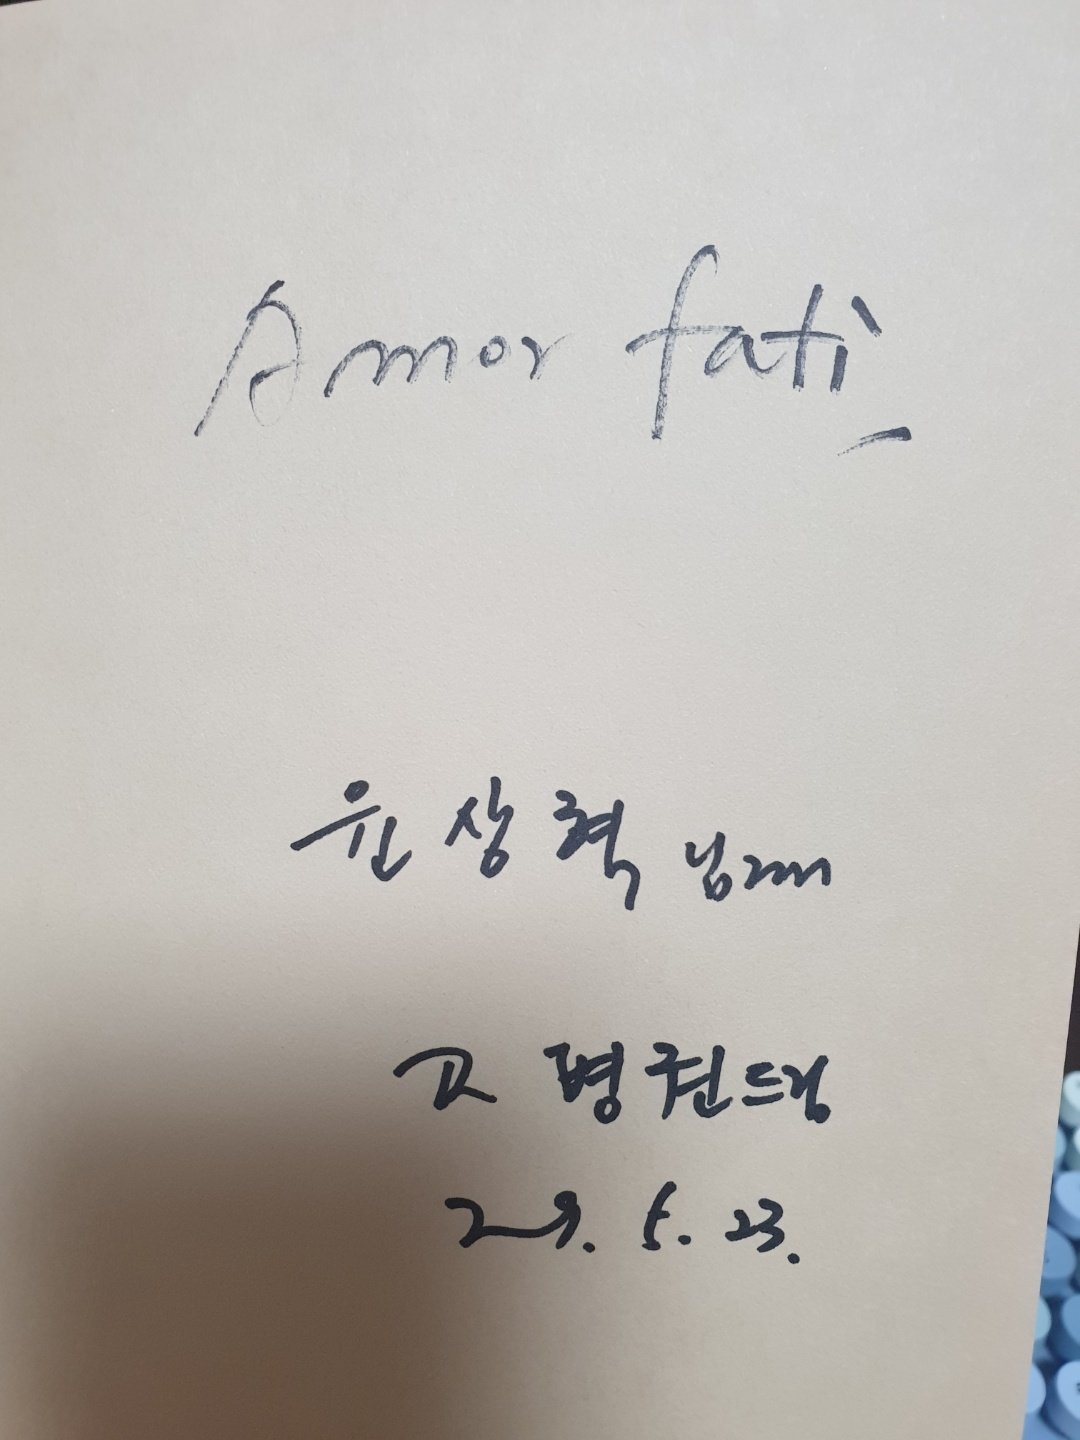 Amor fati
윤상혁 님께
고병권 드림
2019. 5. 23.